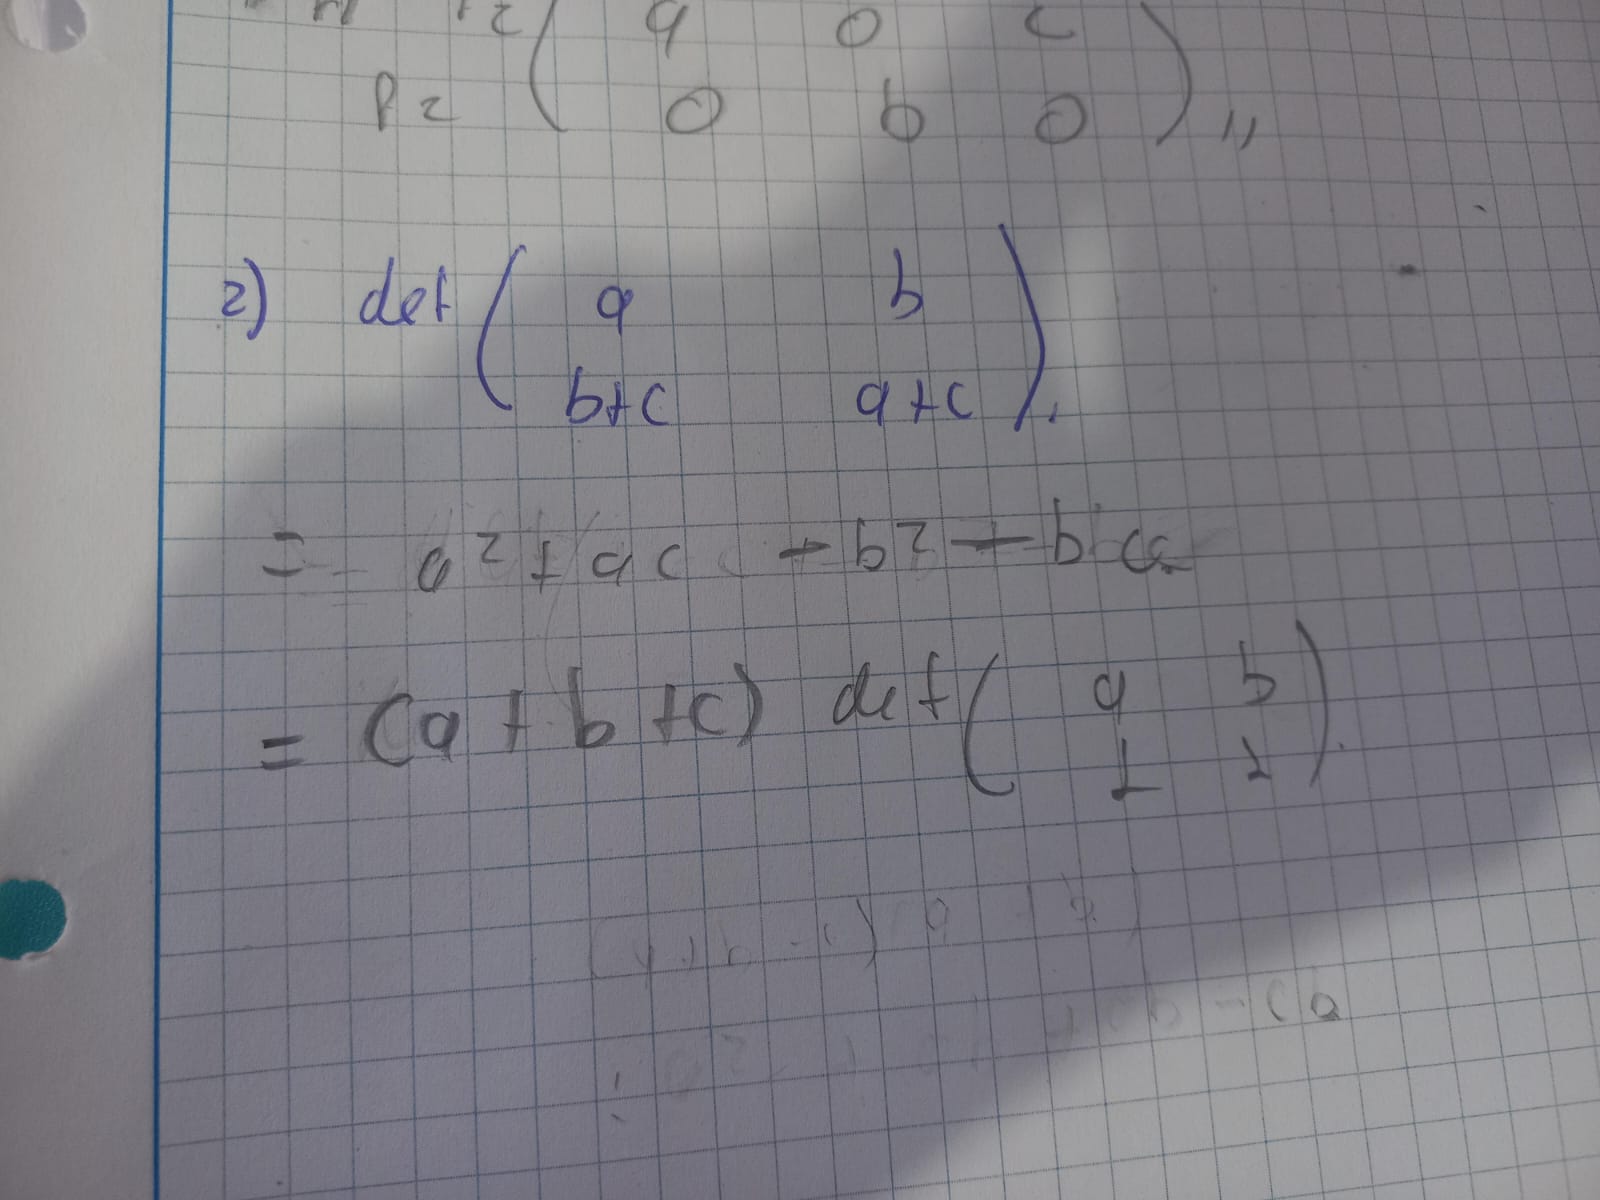 ( a 0 c
P = ( 0 b 0 ) ,,
2) det ( a b
b+c a+c ).
= a² + ac - b² - bc
= (a + b + c) det ( a b
1 1 ).